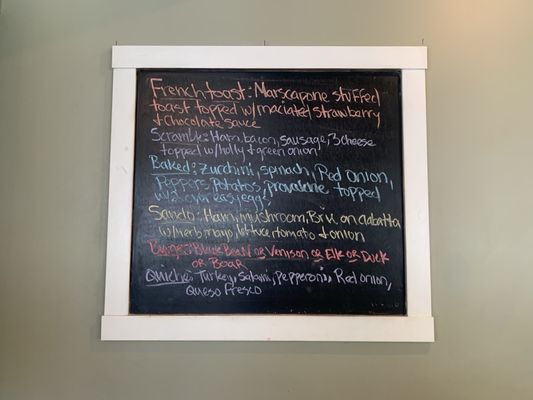 French toast: Marscapone stuffed
toast topped w/maciated strawberry
+ chocolate sauce
Scramble: Ham, bacon, sausage, 3 cheese
topped w/holly + green onion
Baked: Zucchini, spinach, Red onion,
Peppers, Potatos, provalone topped
w/2 over easy eggs
Sando: Ham, mushroom, Brie on ciabatta
w/herb mayo, lettuce tomato + onion
Burger: Black Bean or Venison or Elk or Duck
or Boar
Quiche: Turkey, Salami, pepperoni, Red onion,
Queso Fresco